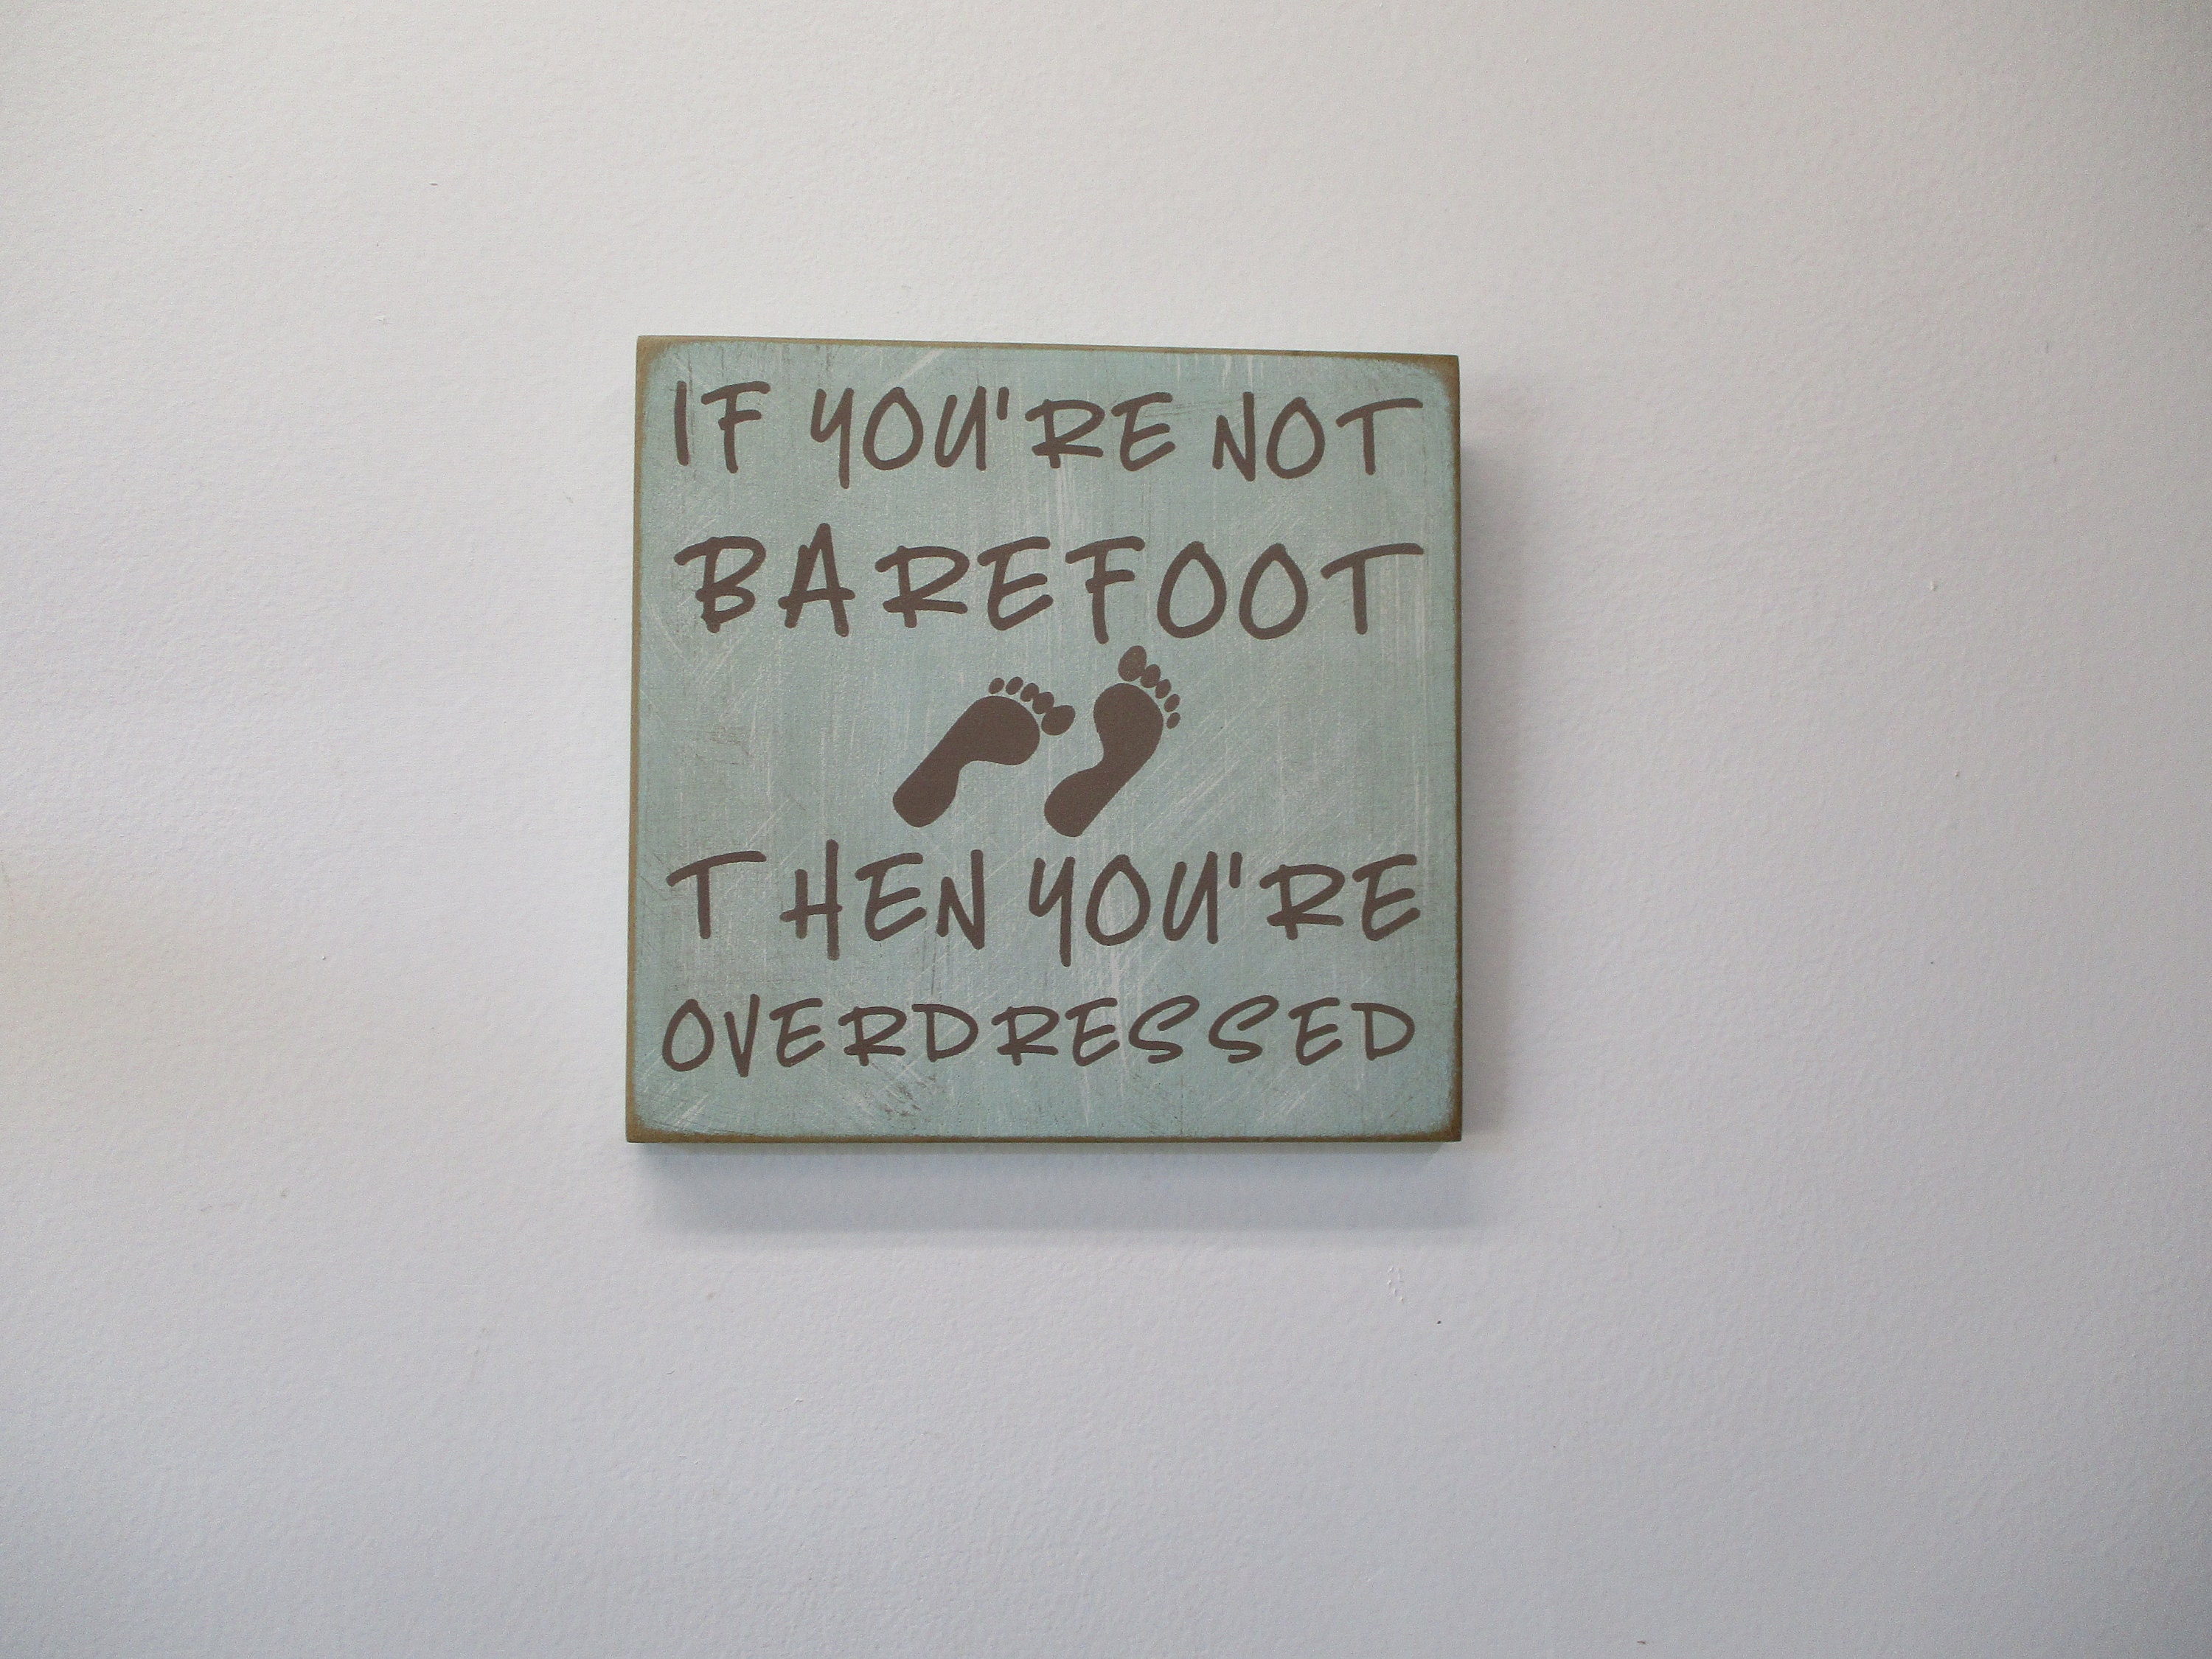 IF YOU'RE NOT
BAREFOOT
THEN YOU'RE
OVERDRESSED